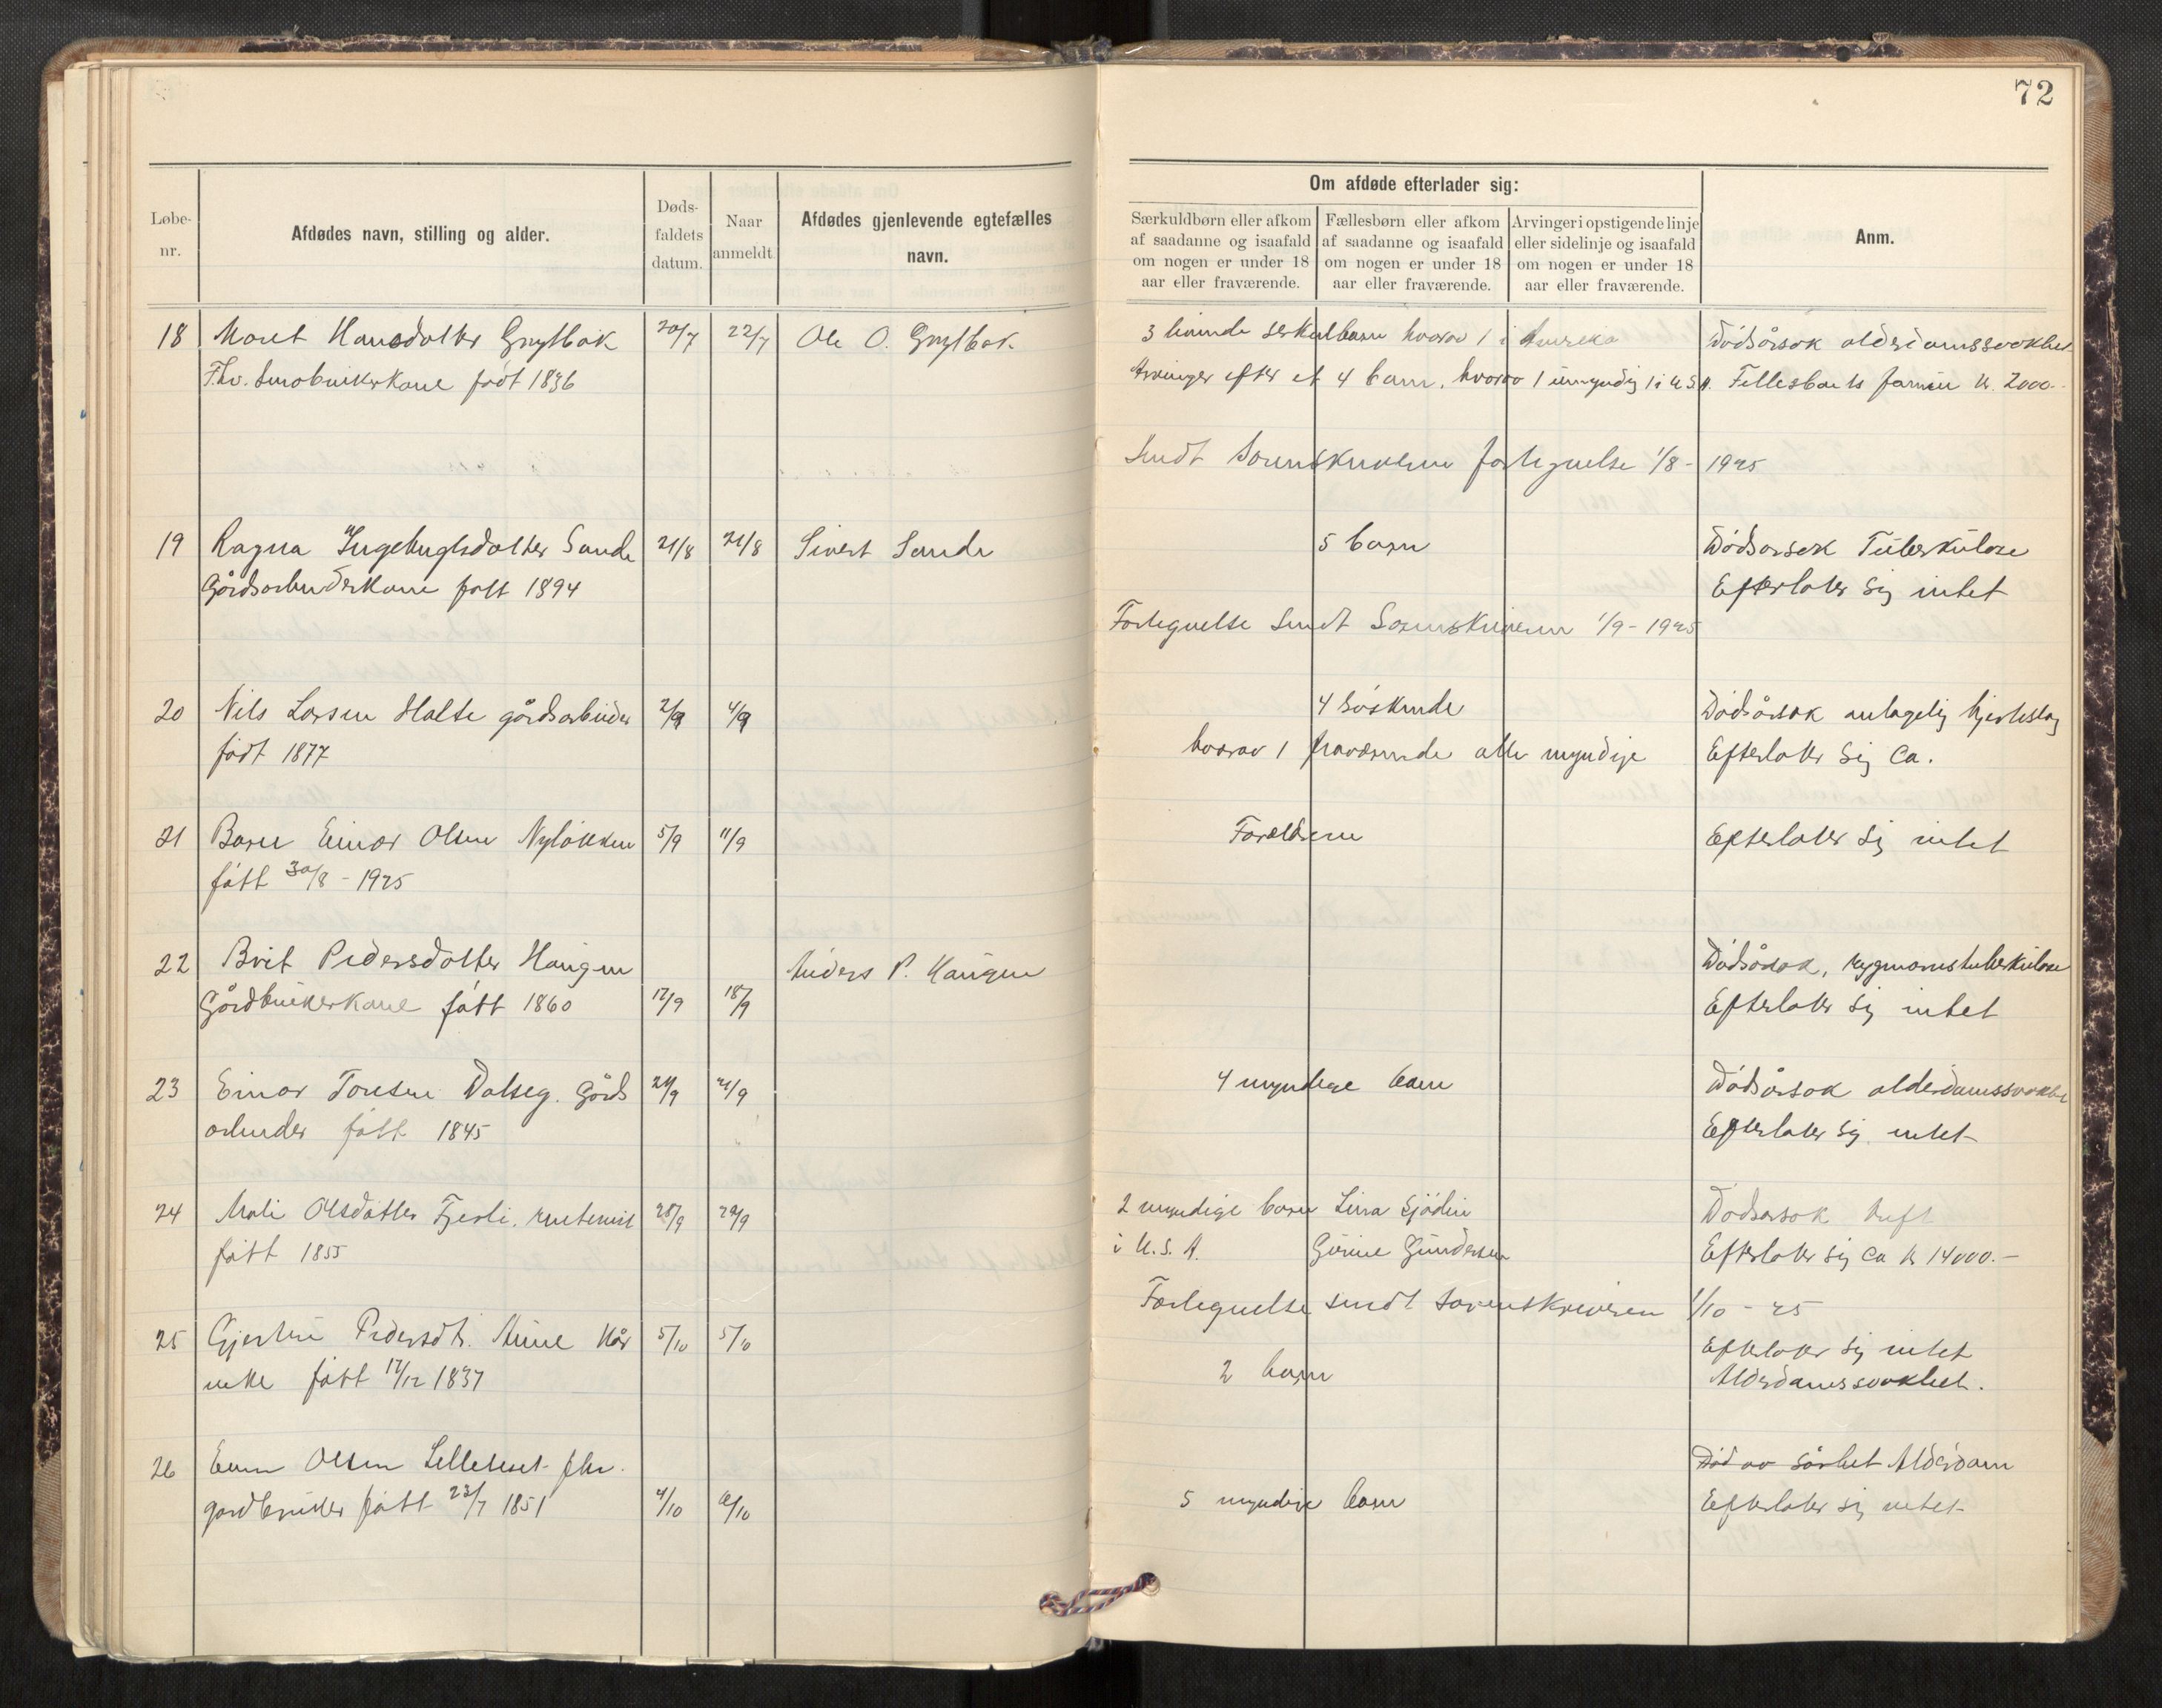 72
Løbe-
nr.
Afdødes navn, stilling og alder.
Døds-
faldets
datum.
Naar
anmeldt
Afdødes gjenlevende egtefælles
navn.
Om afdøde efterlader sig:
Særkuldbørn eller afkom
af saadanne og isaafald
om nogen er under 18
aar eller fraværende.
Fællesbørn eller afkom
af saadanne og isaafald
om nogen er under 18
aar eller fraværende.
Arvinger i opstigende linje
eller sidelinje og isaafald
om nogen er under 18
aar eller fraværende.
Anm.
18 Maret Hansdotter 20/7 22/7 Ole O.
Fhv. Smobrukerkone født 1836
3 særkulbarn hvorav 1 i Amerika
Dødsårsak alderdomssvakhet
Arvinger efter et 4 barn, hvorav 1 umyndig 1 i U.S.A. Fellesboets formue kr. 2000.-
Sendt Sorenskriveren fortegnelse 1/8 - 1925
19 Ragna Sande 21/8 24/8 Sivert Sande 5 barn Dødsorsak Tuberkulose
Gårdsarbeiderkone født 1894 Efterlater sig intet
Fortegnelse sendt Sorenskriveren 1/9 - 1925
20 Nils Larsen Halte gårdsarbeider 2/9 4/9 4 søskende Dødsårsak antagelig hjerteslag
født 1877 hvorav 1 fraværende alle myndige Efterlater sig Ca.
21 Barn Einar Olsen Nyløkken 5/9 11/9 Forældrene Efterlater sig intet
født 30/8 - 1925
22 Brit Pedersdotter Haugen Anders P. Haugen Dødsårsak, rygmarvstuberkulose
Gårdbrukerkone født 1860 17/9 18/9 Efterlater sig intet
23 Einar Toresen Dalseg. Gårds 20/9 21/9 4 myndige barn Dødsårsak alderdomssvakhet
arbeider født 1845 Efterlater sig intet
24 Mali Olsdatter Fjerli. 28/9 29/9 2 myndige barn Lina Sjödin Dødsorsak kreft
født 1855 i U.S.A. Gurine Gundersen Efterlater sig ca kr 14000.-
Fortegnelse sendt sorenskriveren 1/10 - 25
25 Gjertru Pedersdtr. Mine Kår 5/10 5/10 Efterlater sig intet
enke født 17/12 1837 2 barn Alderdomssvakhet.
26 Even Olsen Lilleset fhv. Død av Alderdom
gardbruker født 23/7 1851 4/10 6/10 5 myndige barn Efterlater sig intet